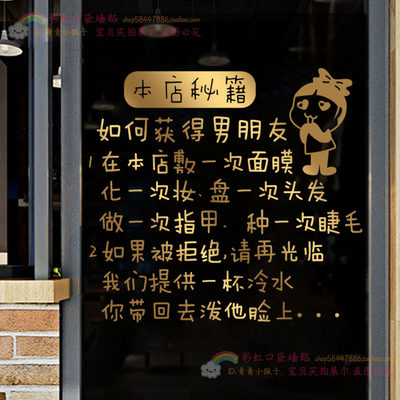 彩虹口袋墙贴 shop58447886.taobao.com
ID:青青小猴子 宝贝实拍展示 盗图必究
本店秘籍
如何获得男朋友
1在本店敷一次面膜
化一次妆.盘一次头发
做一次指甲、种一次睫毛
2如果被拒绝,请再光临
我们提供一杯冷水
你带回去泼他脸上...
彩虹口袋墙贴 shop58447886.taobao.com
ID:青青小猴子 宝贝实拍展示 盗图必究